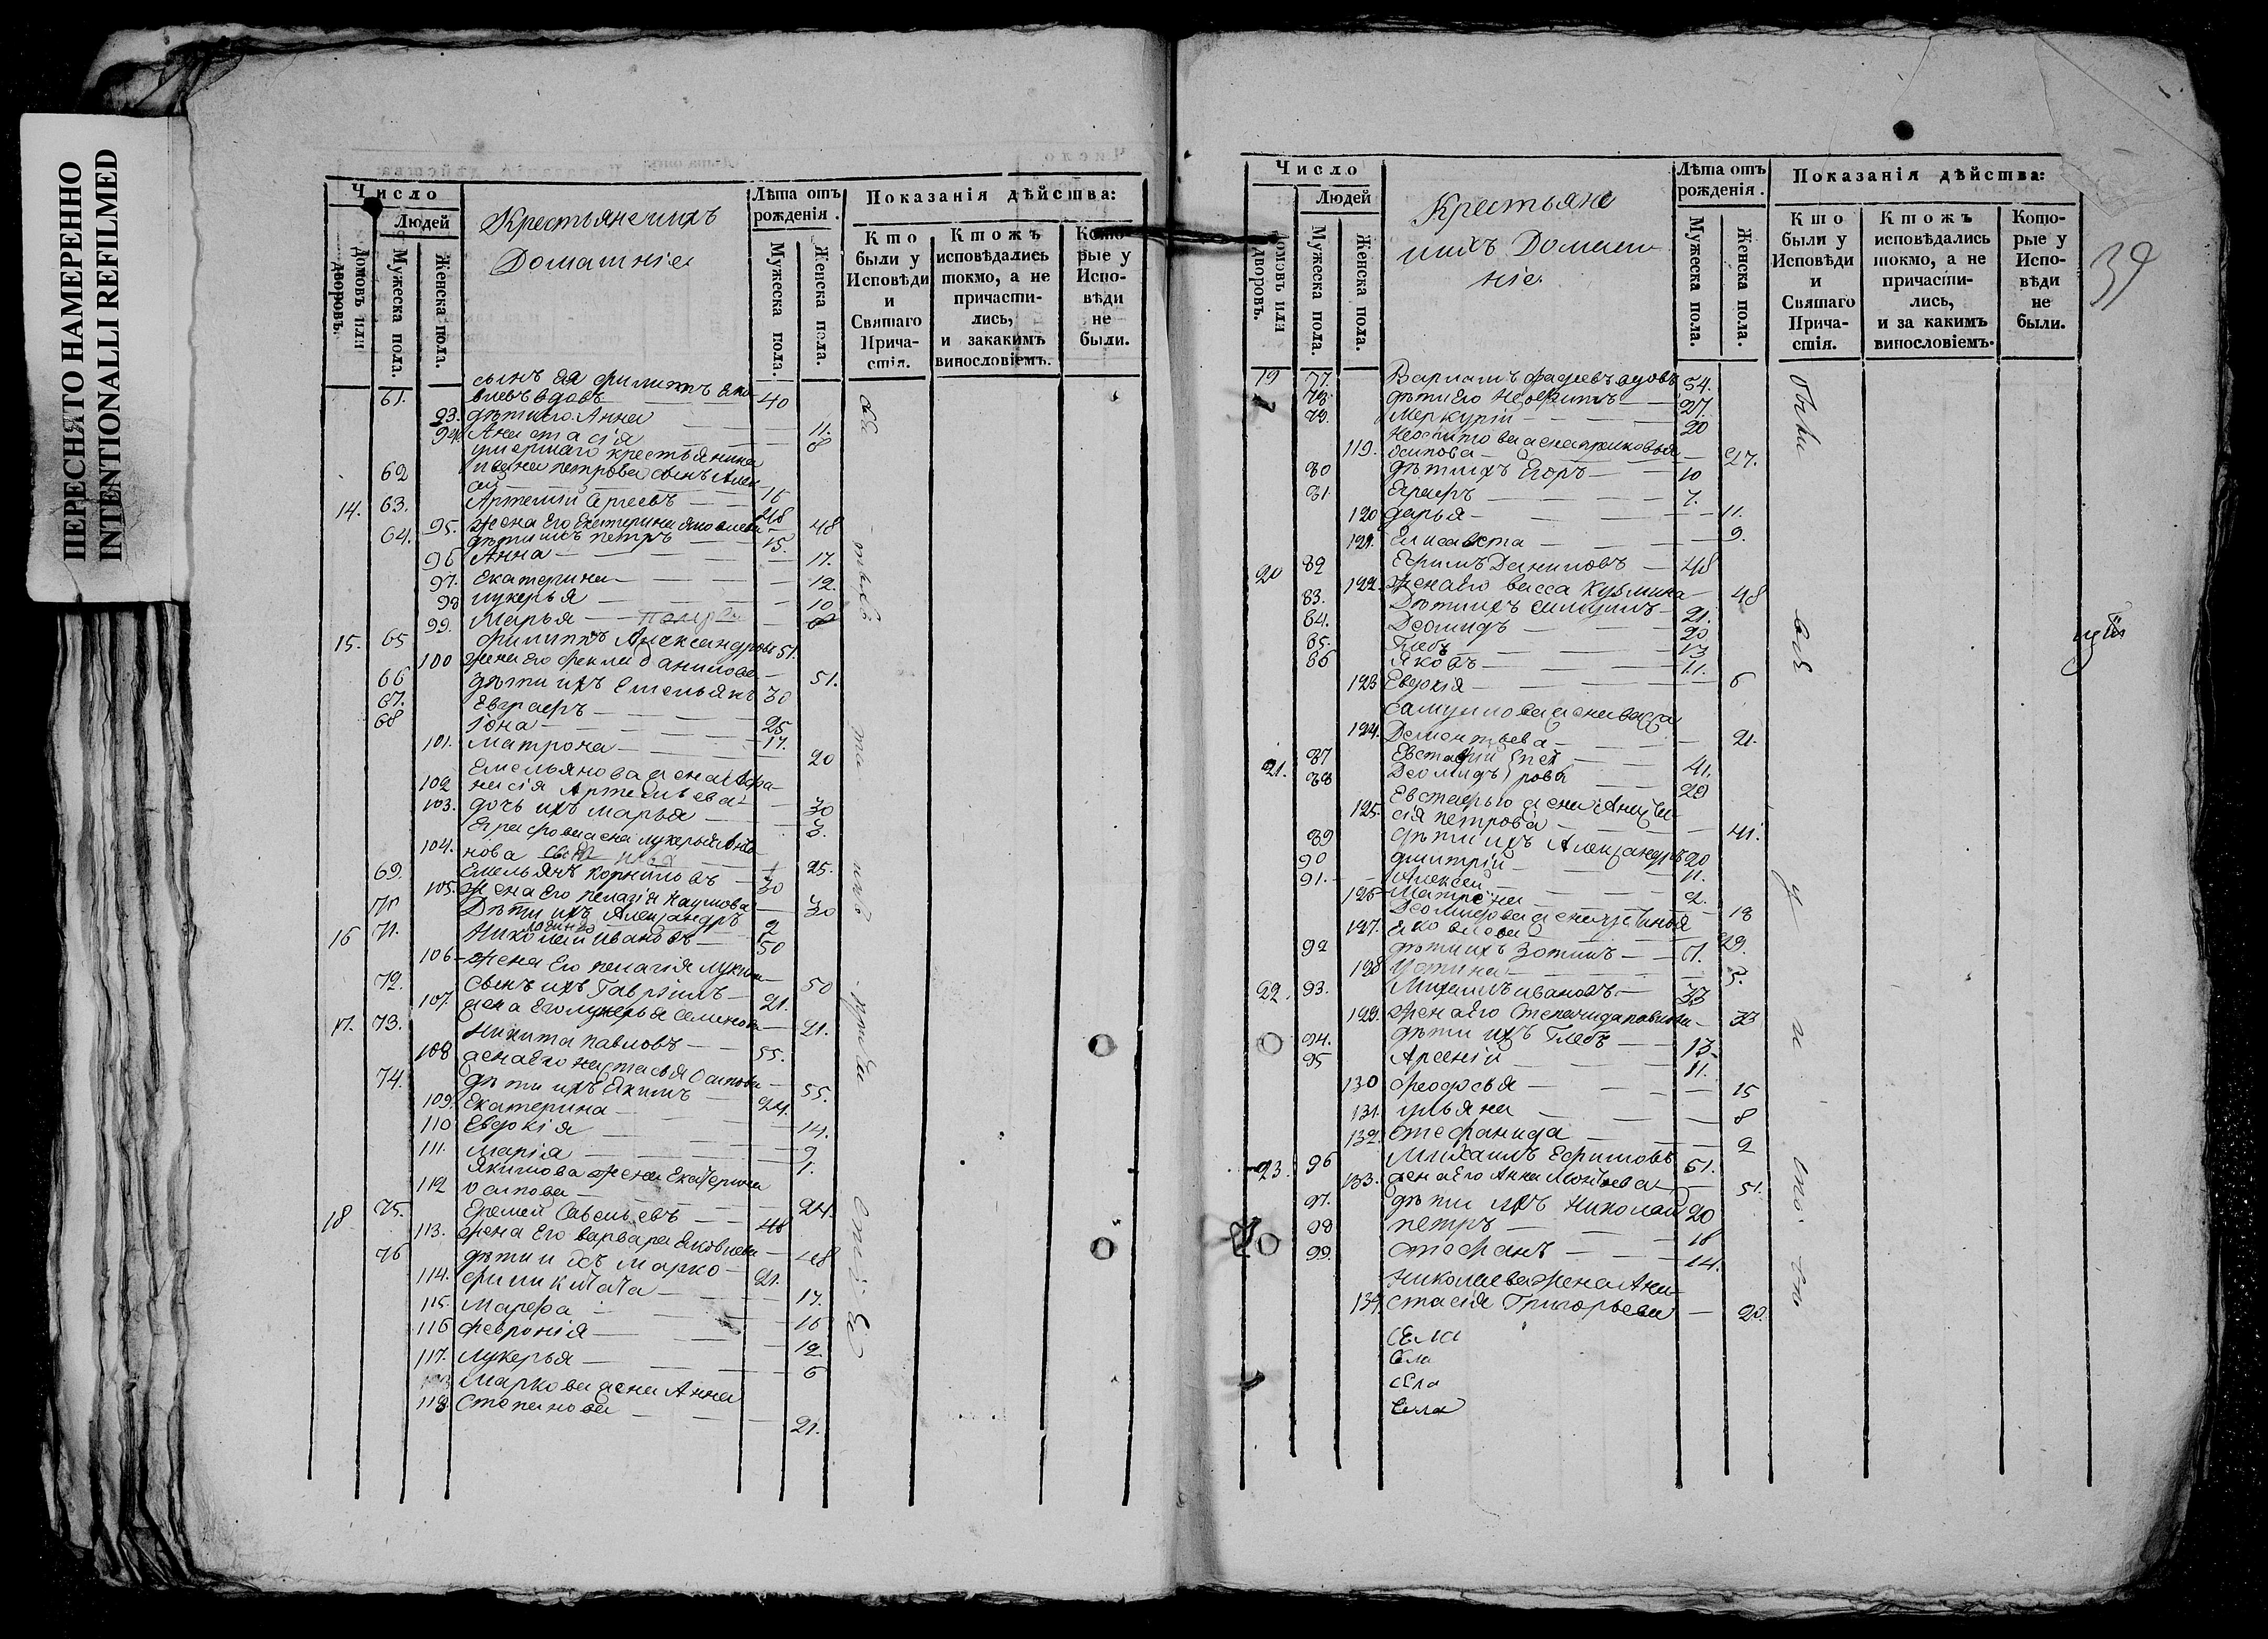 ПЕРЕСНЯТО НАМЕРЕННО
INTENTIONALLI REFILMED
Число
Людей
Домовъ или дворовъ.
Мужеска пола.
Женска пола.
Крестьяне ихъ
Домашніе
Лѣта отъ рожденія.
Мужеска пола.
Женска пола.
Показанія дѣйства:
Кто были у Исповѣди и Святаго Причастія.
Ктожъ исповѣдались токмо, а не причастились, и закакимъ винословіемъ.
Которые у Исповѣди не были.
сынъ ея Филиппъ Яко
61. влевъ вдовъ 40
93. дѣти его Анна 11.
94. Анастасія 8
умершаго крестьянина
62 Ивана Петрова сынъ Алек
сей 16
14. 63. Артемій Сергеевъ 48
95. жена Его Екатерина Яковлева 48
64. дѣти ихъ Петръ 15.
96 Анна 17.
97. Екатерина 12.
98 Лукерья 10
99. Марья 8
15. 65 Филиппъ Александровъ 51.
100 жена Его Фекла Данилова 51.
66 дѣти ихъ Емельянъ 30
67. Евграфъ 25
68 Іона 17.
101. Матрона 20
Емельянова жена Афа
102 насія Артемьева 30
103. дочь ихъ Марья 3.
Евграфова жена Лукерья
104. нова 25.
69. Емельянъ Корниловъ 30
105. жена Его Пелагія Наумова 30
70 Дѣти ихъ Александръ 2
16 71. Николай Ивановъ 50
106 жена Его Пелагія Лукина 50
72. Сынъ ихъ Гавріилъ 21.
107. жена Его Лукерья Семенова 21.
17. 73. Никита Павловъ 55.
108 жена Его Настасья Осипова 55.
74. дѣти ихъ Якимъ 24.
109. Екатерина 14.
110 Евдокія 9
111. Марія 1.
Якимова жена Екатерина
112 Осипова 24.
18 75. Еремей Савельевъ 48
113. жена Его Варвара Яковлева 48
76 дѣти ихъ Марко 21.
114. Филикитата 17.
115. Марфа 16
116 Февронія 12.
117. Лукерья 6
Маркова жена Анна
118 Степанова 21.
Число
Людей
Домовъ или дворовъ.
Мужеска пола.
Женска пола.
Крестьяне
ихъ Домаш
ніе.
Лѣта отъ рожденія.
Мужеска пола.
Женска пола.
Показанія дѣйства:
Кто были у Исповѣди и Святаго Причастія.
Ктожъ исповѣдались токмо, а не причастились, и за какимъ винословіемъ.
Которые у Исповѣди не были.
39
19 77. Варламъ Фадеевъ вдовъ 54.
78. дѣти Его Неофитъ 27.
79. Меркурій 20
Неофитова жена
119. Осипова 27.
80 дѣти ихъ Егоръ 10
81. Еграфъ 7.
120 Дарья 11.
121. Елисавета 9.
20 82 Ефимъ Даниловъ 48
122. жена Его Васса Кузмина 48
83. Дѣти ихъ Самуилъ 21.
84. Деомидъ 20
85. Глебъ 13
86 Яковъ 11.
123 Евдокія 6
Самуилова жена Васса
124. Дементьева 21.
21. 87 Евстафій Пет 41.
88 Деомидъ ровы 29
Евстафья жена Анаста
125. сія Петрова 41.
89 дѣти ихъ Александръ 20
90 Дмитрій 11.
91. Алексей 2.
126 Матрена 18
Деомидова жена Устинья
127. Яковлева 29.
92 дѣти ихъ Зотикъ 7.
128 Устина 5.
22. 93. Михаилъ Ивановъ 33
129. жена Его Степанида Павлова 33
94. дѣти ихъ Глебъ 13
95 Арсеній 11.
130 Феодосья 15
131. Ульяна 8
132. Стефанида 2
23. 96 Михаилъ Ефимовъ 51.
133. жена Его Анна Леонтьева 51.
97. дѣти ихъ Николай 20
98 Петръ 18
99. Стефанъ 14.
Николаева жена Ана
134. стасія Григорьева 20.
села
села
села
села